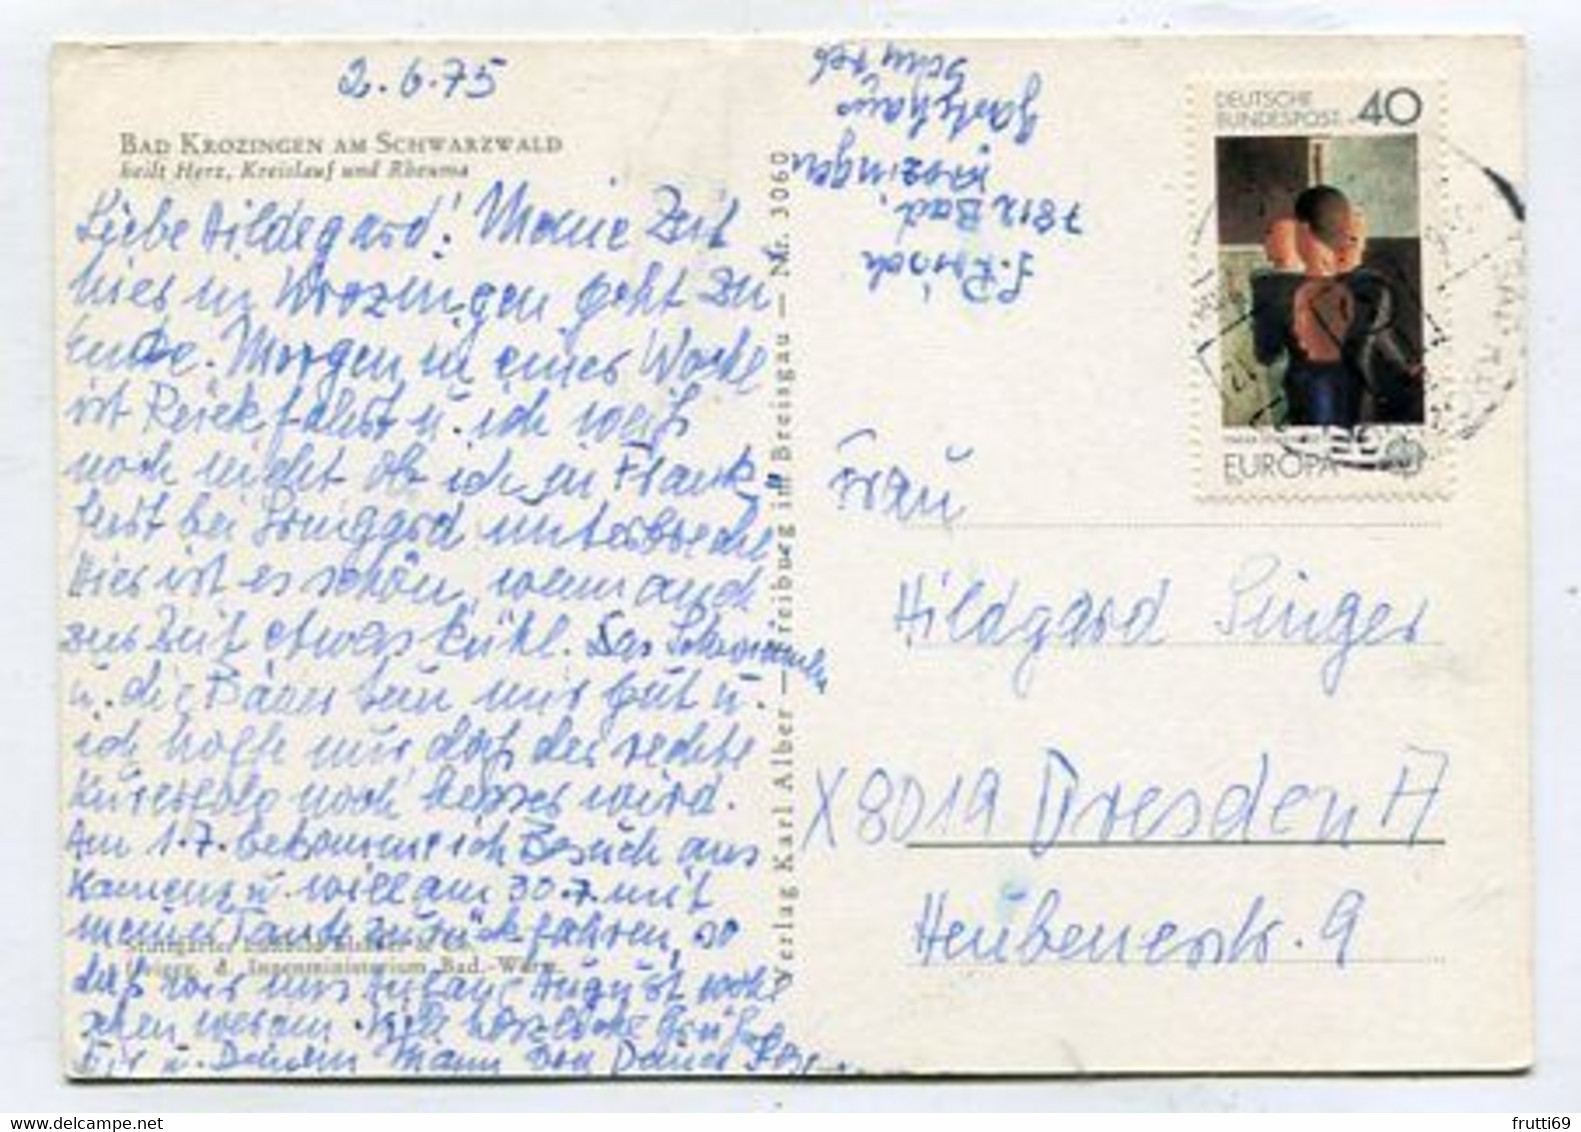 2.6.75
BAD KROZINGEN AM SCHWARZWALD
heilt Herz, Kreislauf und Rheuma
Liebe Hildegard! Meine Zeit
hier in Krozingen geht zu
Ende. Morgen in einer Woche
ist Rückfahrt u. ich weiß
noch nicht ob ich in Frank
furt bei Irmgard unterbreche
Hier ist es schön, wenn auch
zur Zeit etwas kühl. Das Schwimmen
u. die Bäder tun mir gut u.
ich hoffe nur, daß der rechte
Kurerfolg noch besser wird.
Am 1.7. bekomme ich Besuch aus
Kamenz u. will am 30.7. mit
meiner Tante zurückfahren, so
daß wir uns Anfang August wohl
sehen werden. Viele herzliche Grüße
Dir u. Deinem Mann von Deiner
Freigg. d. Innenministerium Bad.-Württ.
Verlag Karl Alber — Freiburg im Breisgau — Nr. 3060
7812 Bad
Krozingen
Gasthaus
DEUTSCHE
BUNDESPOST 40
EUROPA
Frau
Hildgard Singer
X8019 Dresden A
Heubnerstr. 9
frutti69